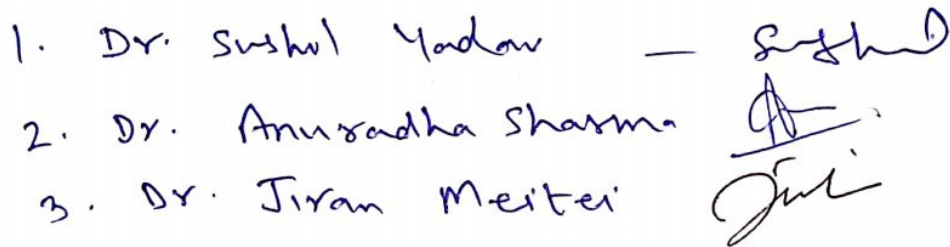 1. Dr. Sushil Yadav —
2. Dr. Anuradha Sharma
3. Dr. Jiran Meitei